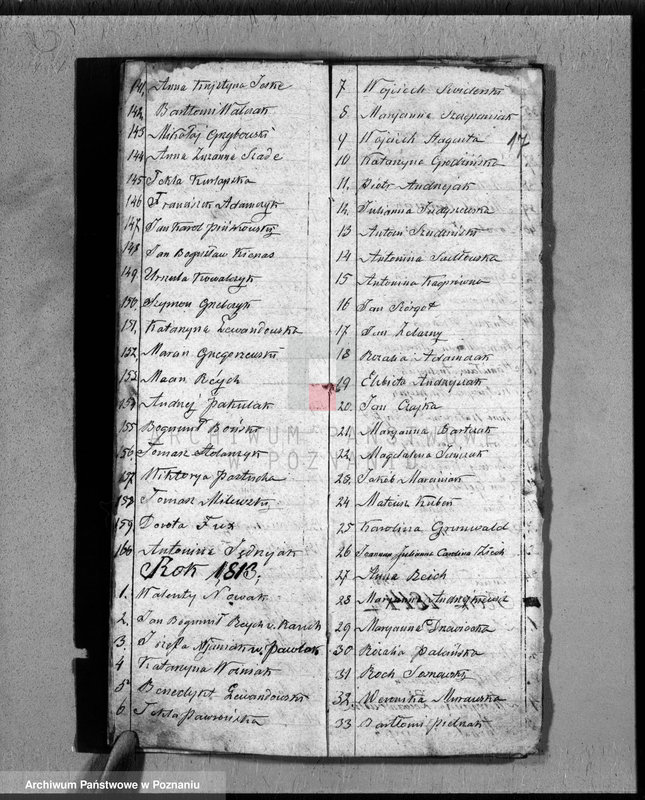 141, Anna Krystyna Jeske
142, Bartłomi Walczak
143 Mikołaj Grybowski
144 Anna Zuzanna Szade
145 Tekla Kurlapska
146 Franciszek Adamczyk
147 Jan Karol
148 Jan Bogusław Kienas
149. Urszula Kowalczyk
150. Szymon Grelczyk
151, Katarzyna Lewandowska
152, Maran Gregorzewski
153 Reÿch
154 Andrzej Pakulak
155 Bogumił Bońsk
156 Tomasz Stolarczyk
157 Wiktorya
158 Tomasz Milewski
159 Dorota Fux
160 Antonina Jędrzejak
Rok 1813.
1. Walenty Nowak
2. Jan Bogumił Reych v. Rauch
3. Józefa v. Pawlak
4 Katarzyna Wozniak
5 Benedykt Lewandowski
6 Tekla Pawrońska
17
7 Wojciech Swiderski
8 Maryanna Szczepaniak
9 Wojciech Staguła
10 Katarzyna Grodzińska
11, Piotr Andrzejak
12, Julianna
13 Antoni
14 Antonina Sadłowska
15 Antonina
16 Jan Szórgot
17 Jan Zelazny
18 Rozalia Adamczak
19 Elzbieta Andrzejczak
20. Jan Czayka
21, Maryanna Bartczak
22, Magdalena Janczak
23, Jakób Marciniak
24 Mateusz Kubeń
25 Karolina Grunwald
26 Joanna Julianna Carolina
27 Anna Reich
28
29 Maryanna
30 Rozalia Palińska
31 Roch
32, Weronika Murawska
33 Bartłomi Pietrzak
ARCHIWUM PAŃSTWOWE
W POZNANIU
Archiwum Państwowe w Poznaniu